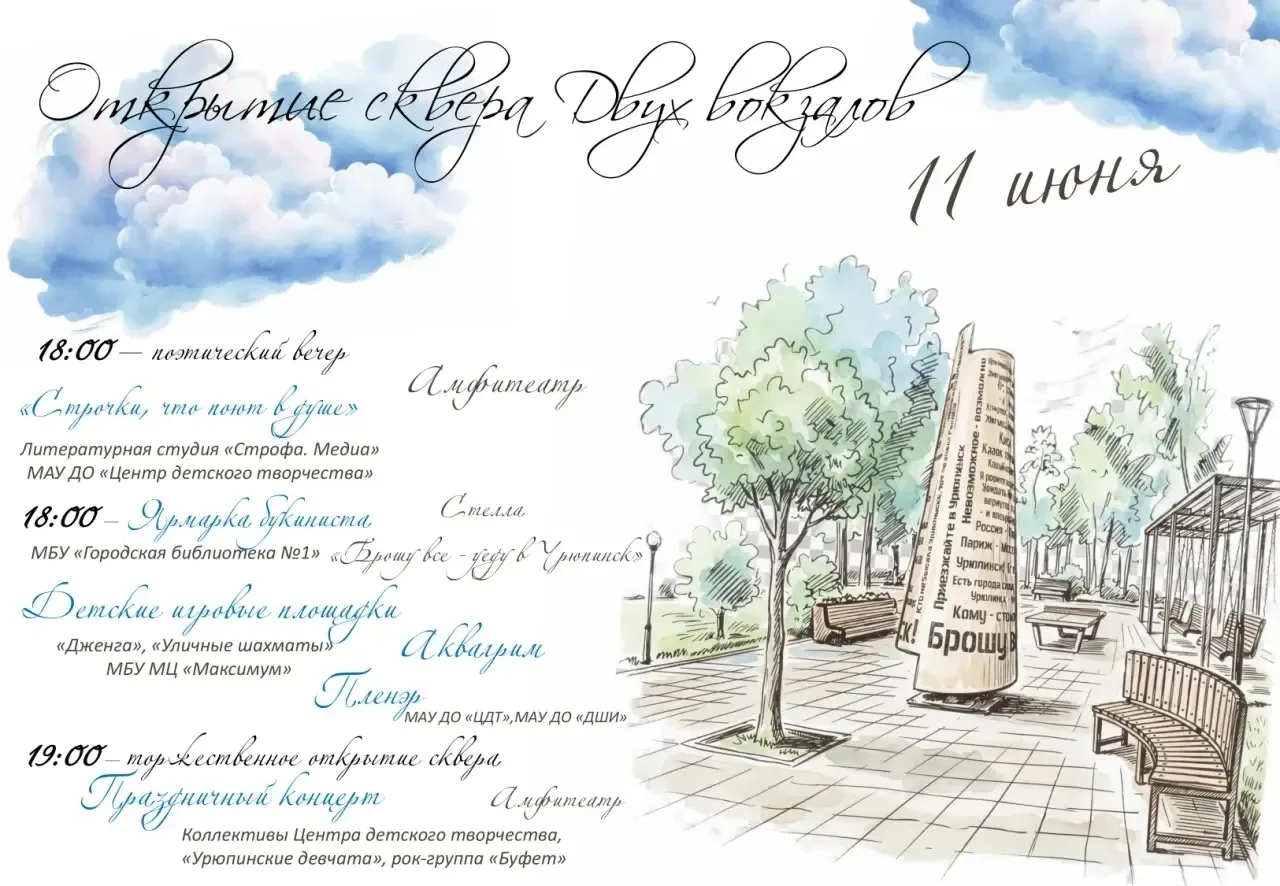 Открытие сквера Двух вокзалов
11 июня
18:00 — поэтический вечер
Амфитеатр
«Строчки, что поют в душе»
Литературная студия «Строфа. Медиа»
МАУ ДО «Центр детского творчества»
18:00 – Ярмарка букиниста
Стелла
МБУ «Городская библиотека №1»
«Брошу все - уеду в Урюпинск»
Детские игровые площадки
«Дженга», «Уличные шахматы»
МБУ МЦ «Максимум»
Аквагрим
Пленэр
МАУ ДО «ЦДТ»,МАУ ДО «ДШИ»
19:00 – торжественное открытие сквера
Праздничный концерт
Амфитеатр
Коллективы Центра детского творчества,
«Урюпинские девчата», рок-группа «Буфет»
Приезжайте в Урюпинск
Невозможное - возможно
Россия -
Париж -
Есть города
Кому -
Брошу в